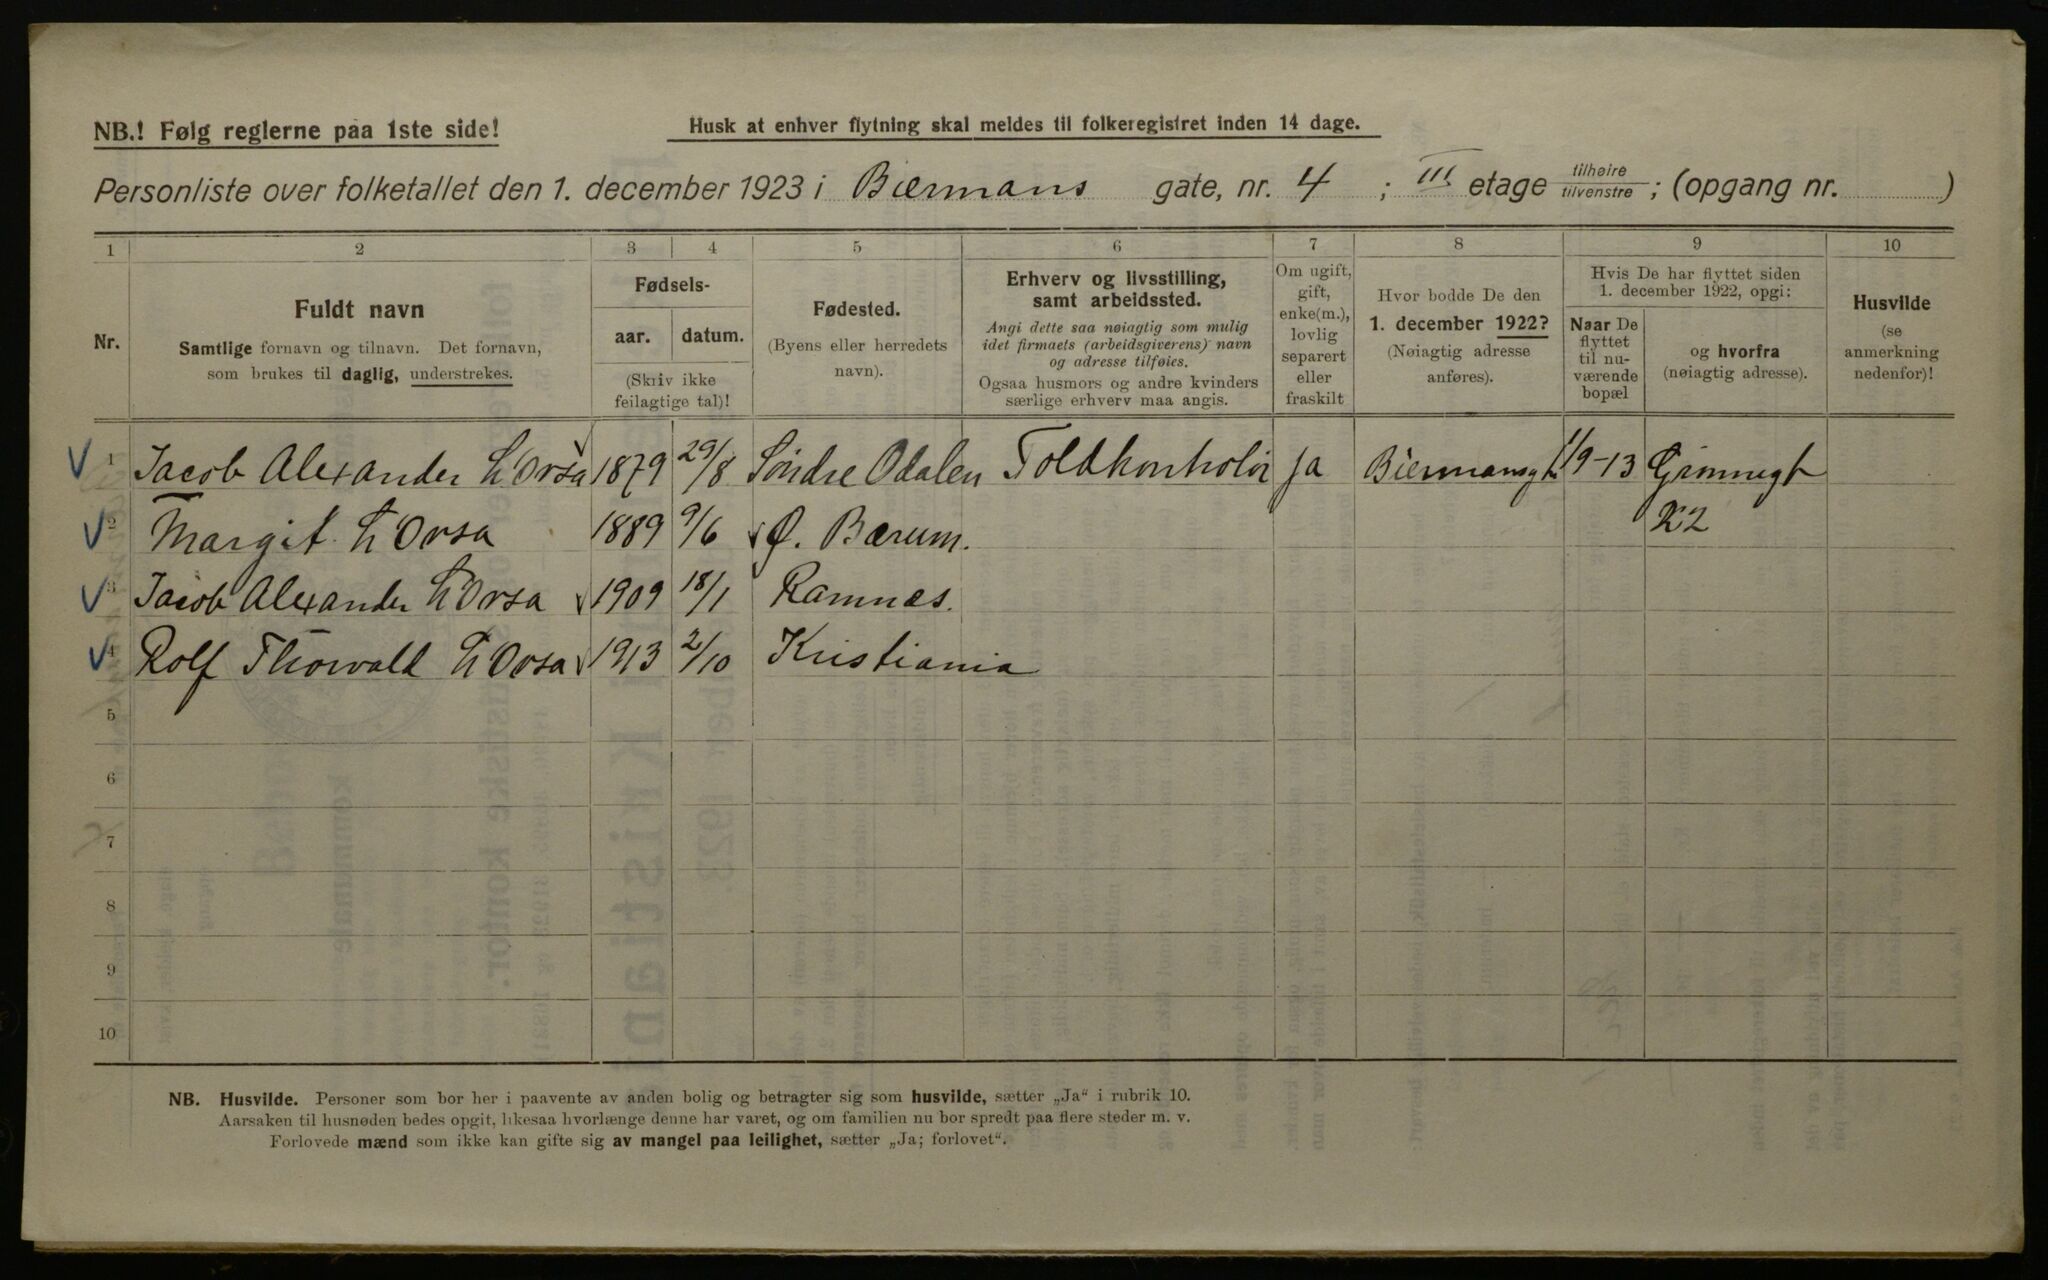 NB.! Følg reglerne paa 1ste side!
Husk at enhver flytning skal meldes til folkeregistret inden 14 dage.
Personliste over folketallet den 1. december 1923 i Biermans gate, nr. 4 ; III etage tilhøire tilvenstre ; (opgang nr. )
1 2 3 4 5 6 7 8 9 10
Nr.
Fuldt navn
Samtlige fornavn og tilnavn. Det fornavn,
som brukes til daglig, understrekes.
Fødsels-
aar. datum.
(Skriv ikke
feilagtige tal)!
Fødested.
(Byens eller herredets
navn).
Erhverv og livsstilling,
samt arbeidssted.
Angi dette saa nøiagtig som mulig
idet firmaets (arbeidsgiverens) navn
og adresse tilføies.
Ogsaa husmors og andre kvinders
særlige erhverv maa angis.
Om ugift,
gift,
enke(m.),
lovlig
separert
eller
fraskilt
Hvor bodde De den
1. december 1922?
(Nøiagtig adresse
anføres).
Hvis De har flyttet siden
1. december 1922, opgi:
Naar De
flyttet
til nu-
værende
bopæl
og hvorfra
(nøiagtig adresse).
Husvilde
(se
anmerkning
nedenfor)!
1 Jacob Alexander L'Orsa 1879 29/8 Søndre Odalen Toldkontrolør ja Biermansgt 1/9-13 Grønnegt
2 Margit L'Orsa 1889 9/6 Ø. Bærum.
3 Jacob Alexander L'Orsa 1909 18/1 Ramnes.
4 Rolf Thorvald L'Orsa 1913 2/10 Kristiania
5
6
7
8
9
10
NB. Husvilde. Personer som bor her i paavente av anden bolig og betragter sig som husvilde, sætter „Ja“ i rubrik 10.
Aarsaken til husnøden bedes opgit, likesaa hvorlænge denne har varet, og om familien nu bor spredt paa flere steder m. v.
Forlovede mænd som ikke kan gifte sig av mangel paa leilighet, sætter „Ja; forlovet“.